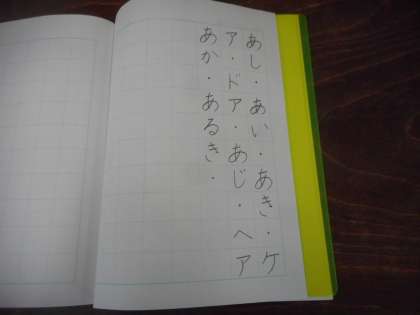 あし・あい・あき・ケ
ア・ドア・あじ・ヘア
あか・あるき・